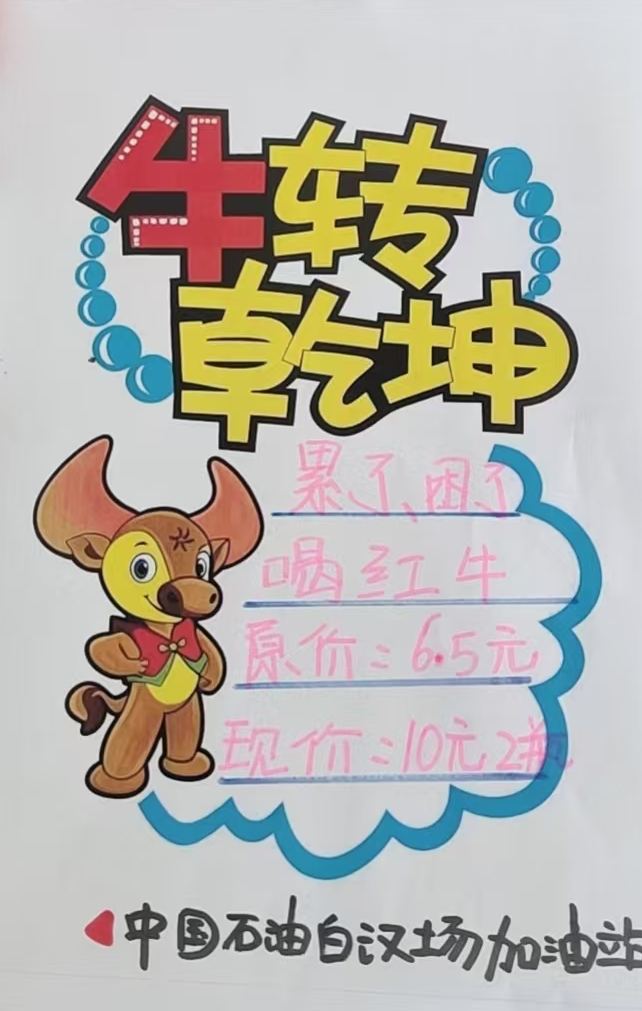 牛转
乾坤
累了、困了
喝红牛
原价：6.5元
现价：10元2瓶
中国石油白汉场加油站